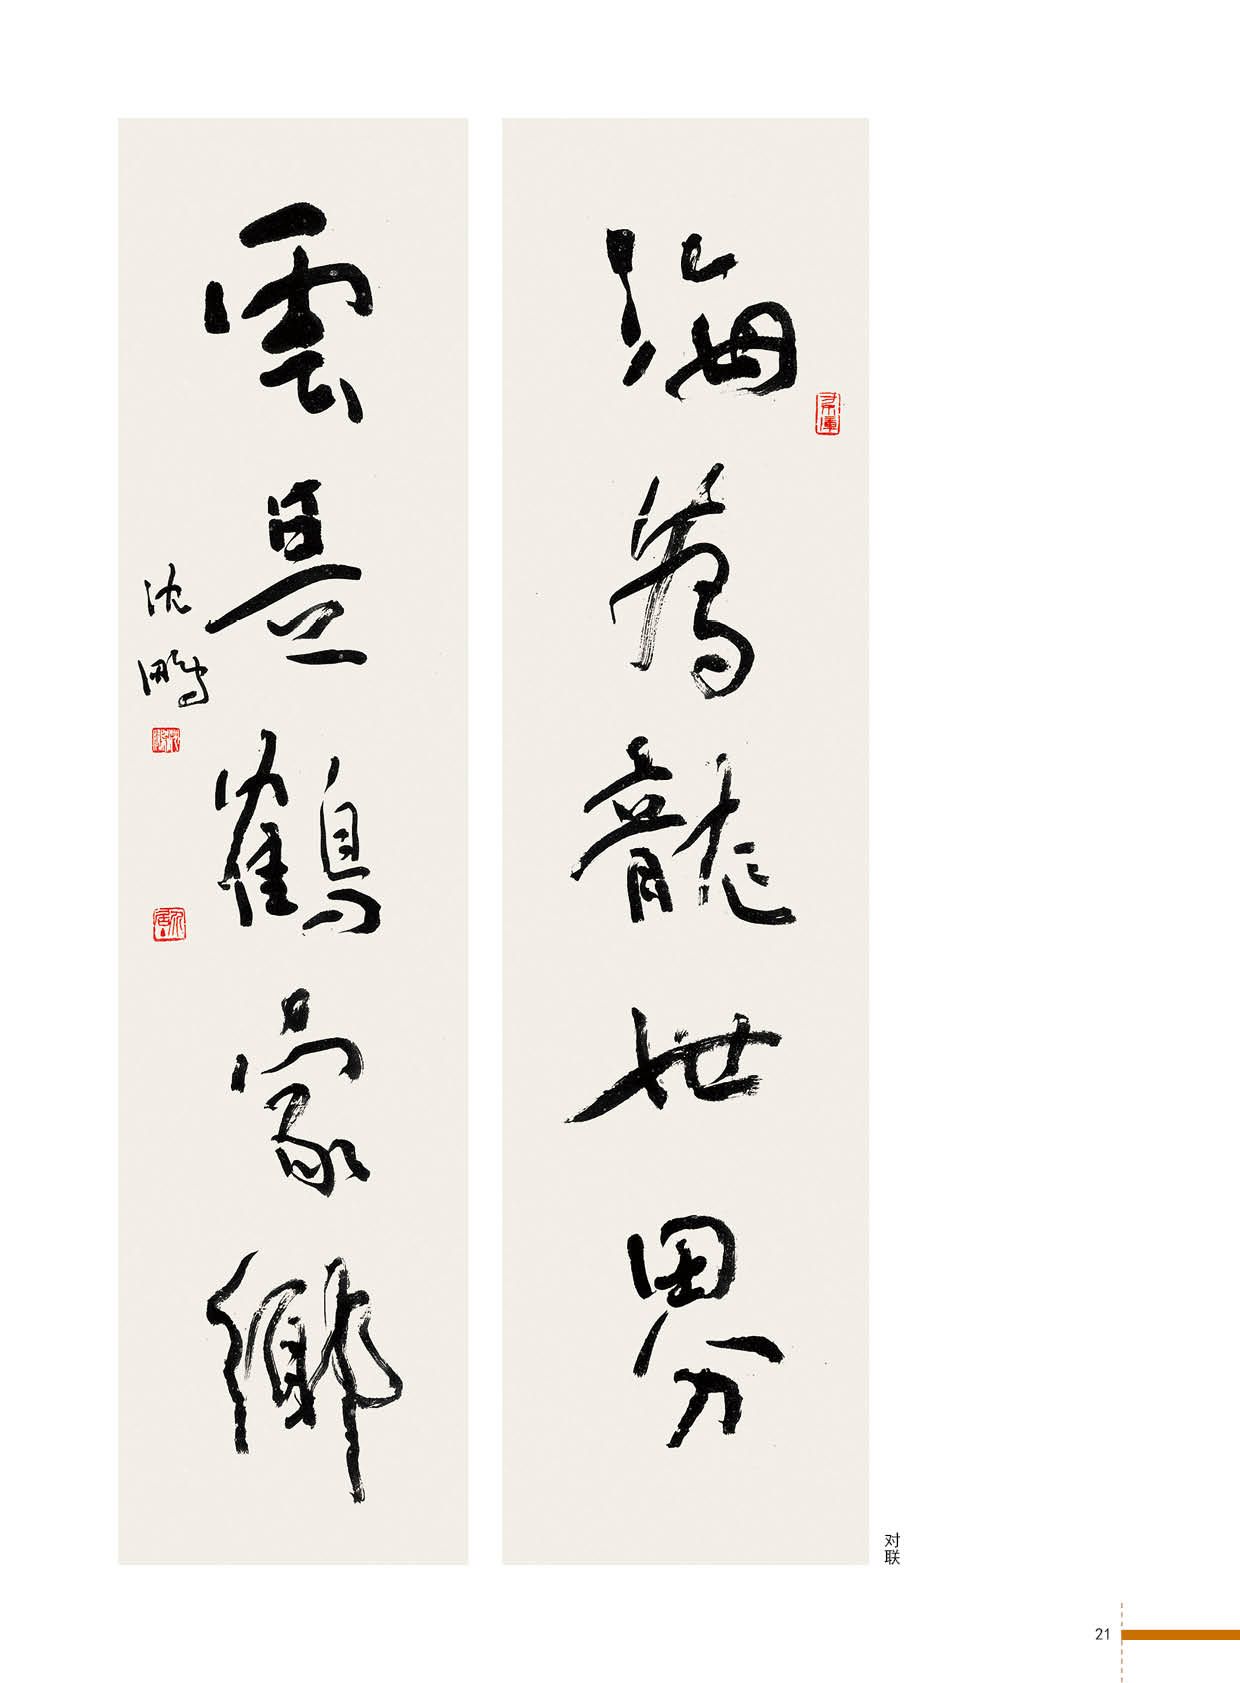 海为龍世界
雲是鶴家鄉
沈鵬
对联
21